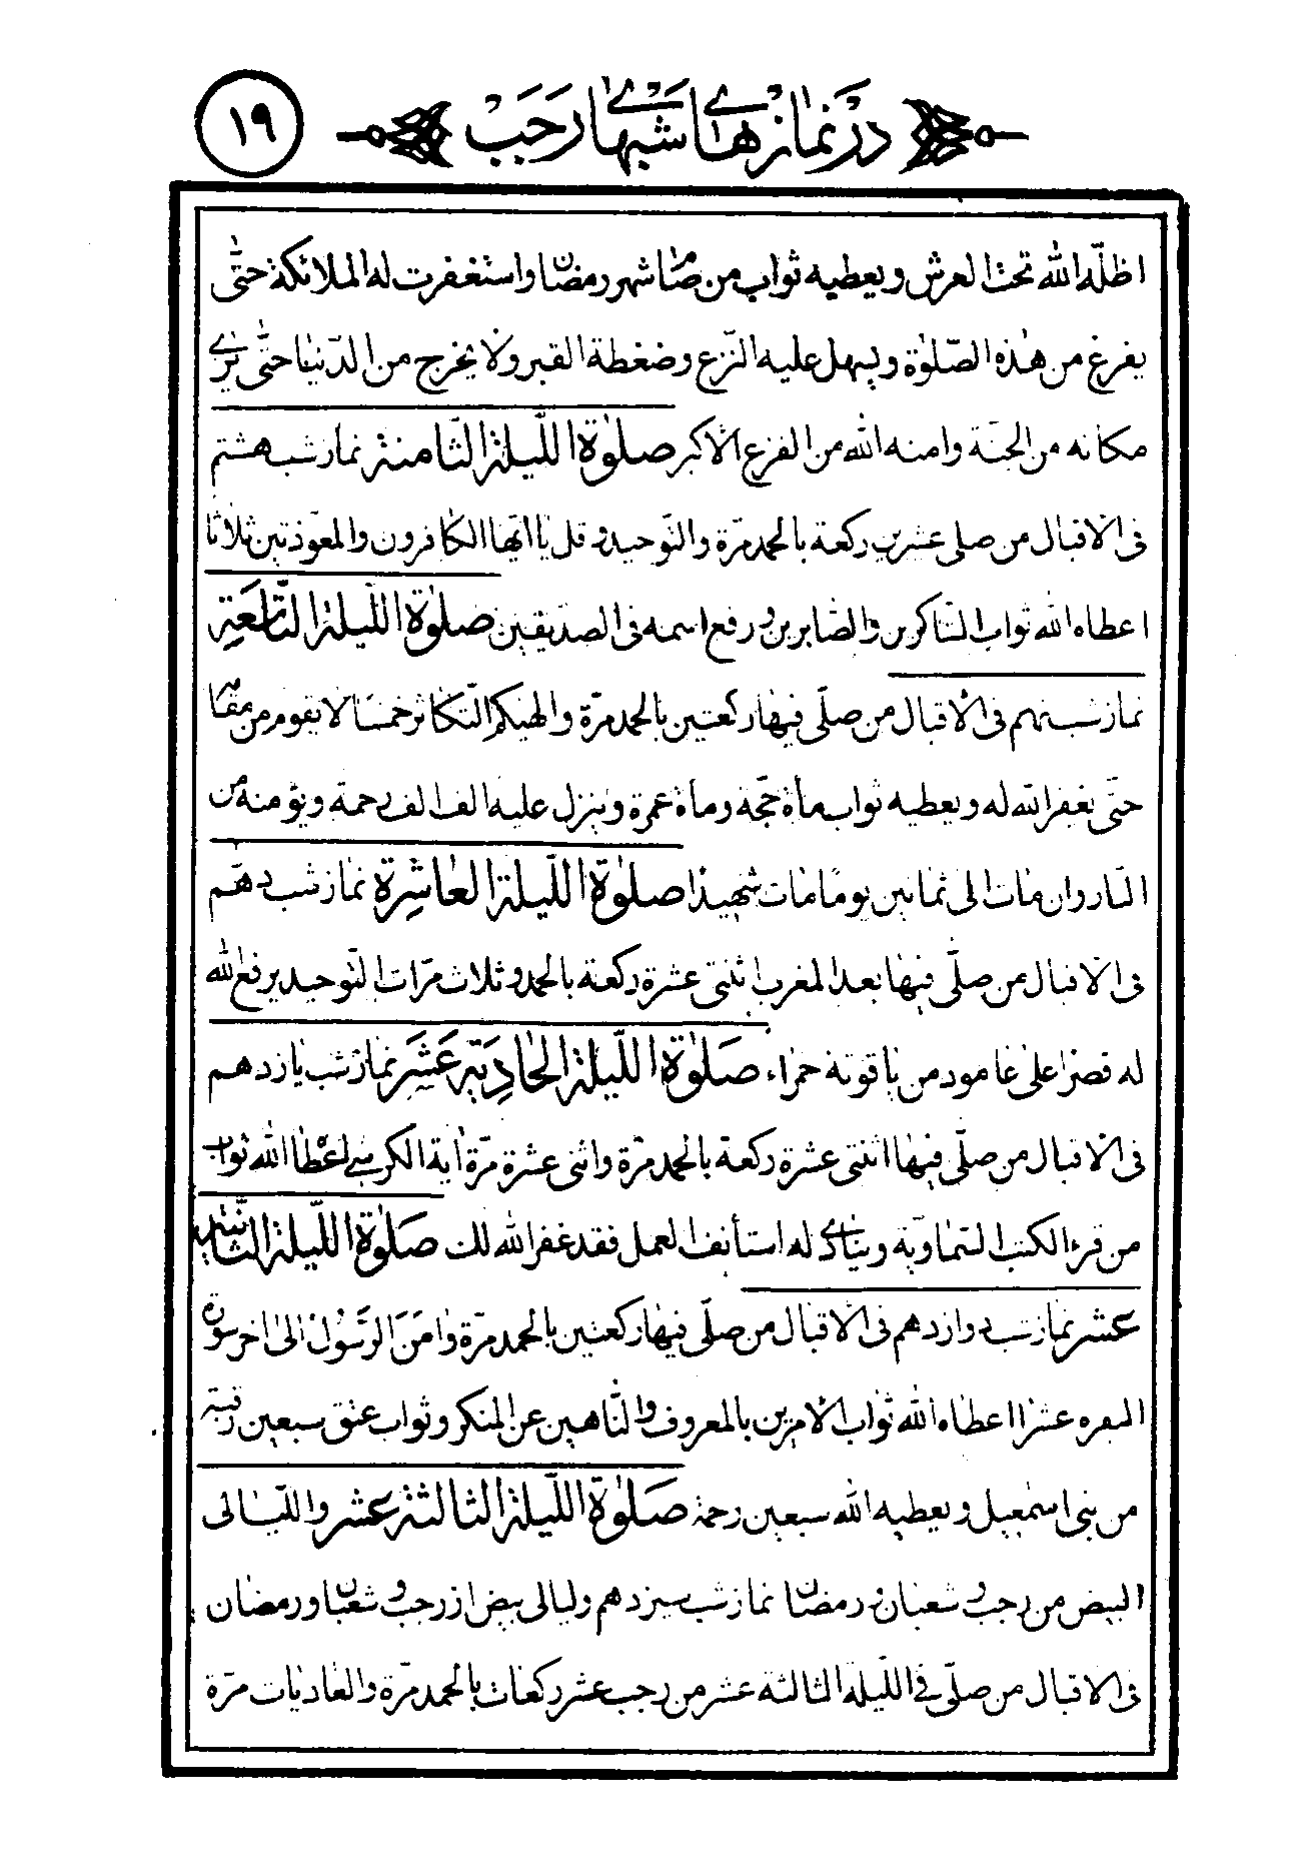 در نمازهاے شبهاے رجب
١٩
اظلّه الله تحت العرش و يعطيه ثواب من صام شهر رمضان و استغفرت له الملائكة حتّى
يفرغ من هذه الصّلوٰة و يسهل عليه النّزع و ضغطة القبر و لا يخرج من الدّنيا حتّى يرٰے
مكانه من الجنّة و امنه الله من الفزع الاكبر صلوٰة اللّيلة الثّامنة نماز شب هشتم
فى الاقبال من صلى عشرين ركعة بالحمد مرّة و التّوحيد و قل يا ايّها الكافرون و المعوّذتين ثلاثا
اعطاه الله ثواب الشّاكرين و الصّابرين و رفع اسمه فى الصدّيقين صلوٰة اللّيلة التّاسعة
نماز شب نهم فى الاقبال من صلّى فيها ركعتين بالحمد مرّة و الهيكم التّكاثر خمسا لا يقوم من مقامه
حتّى يغفر الله له و يعطيه ثواب مأة حجّة و مأة عمرة و ينزل عليه الف الف رحمة و يؤمنه من
النّار و ان مات الى ثمانين يومًا مات شهيدًا صلوٰة اللّيلة العاشرة نماز شب دهم
فى الاقبال من صلّى فيها بعد المغرب اثنتى عشرة ركعة بالحمد و ثلاث مرّات التّوحيد يرفع الله
له قصرًا على عامود من ياقوتة حمراء، صلوٰة اللّيلة الحادية عشر نماز شب يازدهم
فى الاقبال من صلّى فيها اثنتى عشرة ركعة بالحمد مرّة و اثنى عشرة مرّة اٰية الكرسے اعطا الله ثواب
من قرء الكتب السّماويّة و ينادٰے له استأنف العمل فقد غفر الله لك صلوٰة اللّيلة الثّانية
عشر نماز شب دوازدهم فى الاقبال من صلّى فيها ركعتين بالحمد مرّة و اٰمَنَ الرَّسُوْلُ الىٰ اخر سورة
البقره عشرًا اعطاه الله ثواب الاٰمرين بالمعروف و النّاهين عن المنكر و ثواب عتق سبعين رقبة
من بنى اسمٰعيل و يعطيه الله سبعين رحمة صلوٰة اللّيلة الثالثة عشر و اللّيالى
البيض من رجب و شعبان و رمضان نماز شب سيزدهم و ليالى بيض از رجب و شعبان و رمضان
فى الاقبال من صلّى فے اللّيلة الثالثة عشر من رجب عشر ركعات بالحمد مرّة و العاديات مرّة